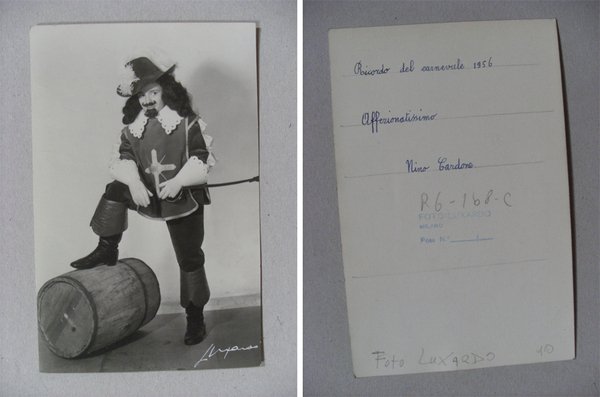 Luxardo
Ricordo del carnevale 1956
Affezionatissimo
Nino Cardone
R6-168-C
FOTO LUXARDO
MILANO
Foto N°
Foto LUXARDO 40